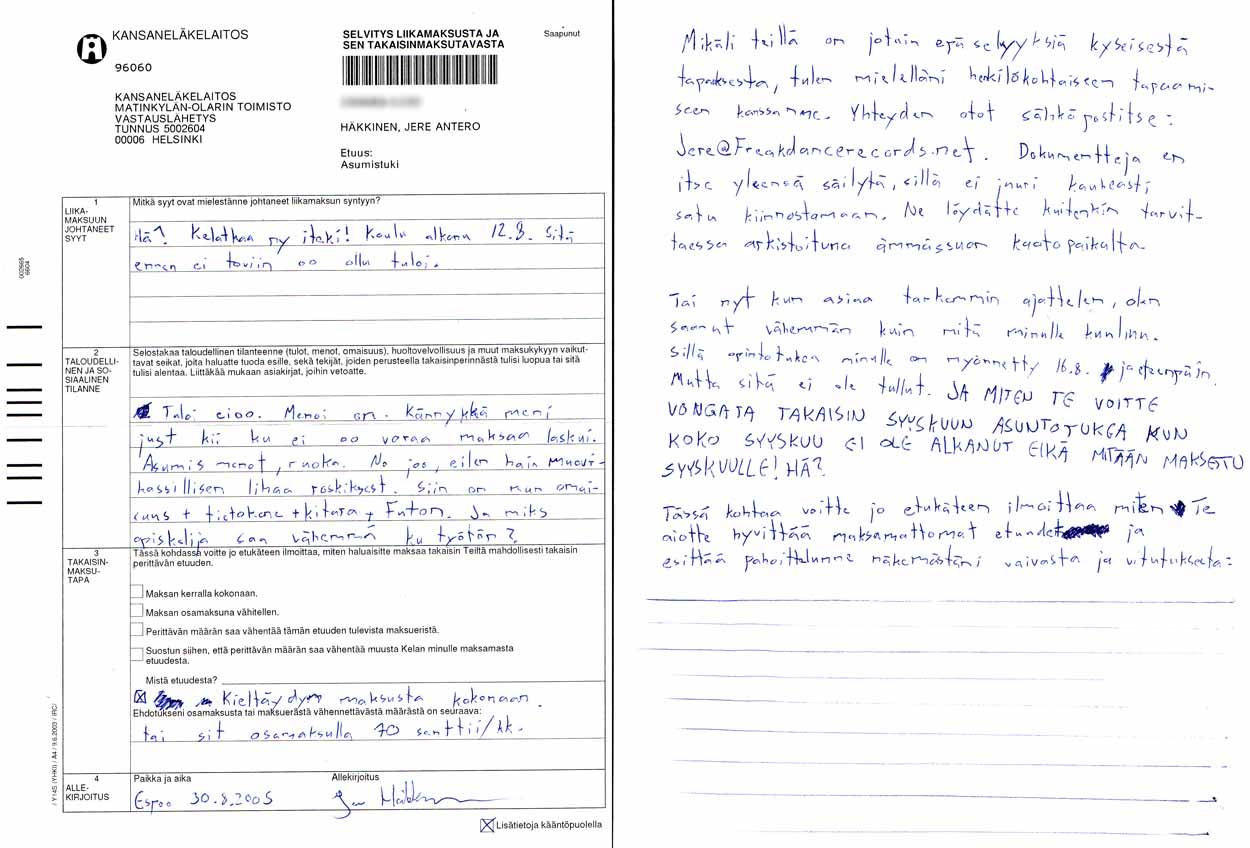 KANSANELÄKELAITOS
96060
KANSANELÄKELAITOS
MATINKYLÄN-OLARIN TOIMISTO
VASTAUSLÄHETYS
TUNNUS 5002604
00006 HELSINKI
SELVITYS LIIKAMAKSUSTA JA
SEN TAKAISINMAKSUTAVASTA
Saapunut
HÄKKINEN, JERE ANTERO
Etuus:
Asumistuki
1
LIIKA-
MAKSUUN
JOHTANEET
SYYT
Mitkä syyt ovat mielestänne johtaneet liikamaksun syntyyn?
Hä? Kelatkaa ny iteki! Koulu alkanu 12.8. Sitä
ennen ei toviin oo ollu tuloi.
2
TALOUDELLI-
NEN JA SO-
SIAALINEN
TILANNE
Selostakaa taloudellinen tilanteenne (tulot, menot, omaisuus), huoltovelvollisuus ja muut maksukykyyn vaikut-
tavat seikat, joita haluatte tuoda esille, sekä tekijät, joiden perusteella takaisinperinnästä tulisi luopua tai sitä
tulisi alentaa. Liittäkää mukaan asiakirjat, joihin vetoatte.
Tuloi eioo. Menoi on. Kännykkä meni
just kii ku ei oo varaa maksaa laskui.
Asumis menot, ruoka. No joo, eilen hain muovi-
kassillisen lihaa roskiksest. Siin on mun omai-
suus + tietokone + kitara + Futon. Ja miks
opiskelija saa vähemmä ku työtön?
3
TAKAISIN-
MAKSU-
TAPA
Tässä kohdassa voitte jo etukäteen ilmoittaa, miten haluaisitte maksaa takaisin Teiltä mahdollisesti takaisin
perittävän etuuden.
Maksan kerralla kokonaan.
Maksan osamaksuna vähitellen.
Perittävän määrän saa vähentää tämän etuuden tulevista maksueristä.
Suostun siihen, että perittävän määrän saa vähentää muusta Kelan minulle maksamasta
etuudesta.
Mistä etuudesta?
Kieltäydyn maksusta kokonaan.
Ehdotukseni osamaksusta tai maksuerästä vähennettävästä määrästä on seuraava:
tai sit osamaksulla 70 santtii/kk.
4
ALLE-
KIRJOITUS
Paikka ja aika
Allekirjoitus
Espoo 30.8.2005
Lisätietoja kääntöpuolella
002665
6604
/ Y14S (YHKI) / A4 / 9.6.2003 / IRC/
Mikäli teillä on jotain epäselvyyksiä kyseisestä
tapauksesta, tulen mielelläni henkilökohtaiseen tapaami-
seen kanssanne. Yhteyden otot sähköpostitse:
Jere@Freakdancerecords.net. Dokumentteja en
itse yleensä säilytä, sillä ei juuri kauheasti
satu kiinnostamaan. Ne löydätte kuitenkin tarvit-
taessa arkistoituna ämmässuon kaatopaikalta.
Tai nyt kun asiaa tarkemmin ajattelen, olen
saanut vähemmän kuin mitä minulle kuuluu.
Sillä opintotukea minulle on myönnetty 16.8. ja eteenpäin.
Mutta sitä ei ole tullut. JA MITEN TE VOITTE
VONGATA TAKAISIN SYYSKUUN ASUNTOTUKEA KUN
KOKO SYYSKUU EI OLE ALKANUT EIKÄ MITÄÄN MAKSETTU
SYYSKUULLE! HÄ?
Tässä kohtaa voitte jo etukäteen ilmoittaa miten Te
aiotte hyvittää maksamattomat etuudet ja
esittää pahoittelunne näkemästäni vaivasta ja vitutuksesta: